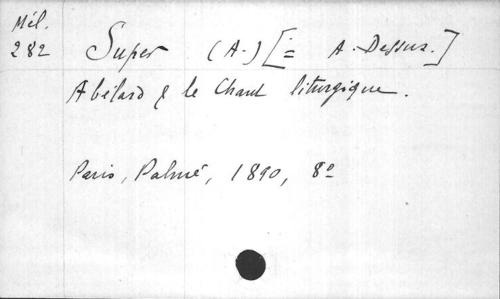 Mél.
282
Super (A.) [= A. Dessus.]
Abélard & le Chant liturgique.
Paris, Palmé, 1890, 8º